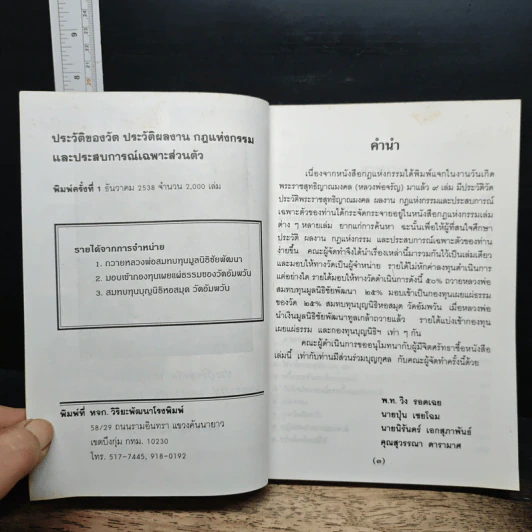 ประวัติของวัด ประวัติผลงาน กฎแห่งกรรม
และประสบการณ์เฉพาะส่วนตัว
พิมพ์ครั้งที่ 1 ธันวาคม 2538 จำนวน 2,000 เล่ม
รายได้จากการจำหน่าย
1. ถวายหลวงพ่อสมทบทุนมูลนิธิชัยพัฒนา
2. มอบเข้ากองทุนเผยแผ่ธรรมของวัดอัมพวัน
3. สมทบทุนบุญนิธิหอสมุด วัดอัมพวัน
พิมพ์ที่ หจก. วิริยะพัฒนาโรงพิมพ์
58/29 ถนนรามอินทรา แขวงคันนายาว
เขตบึงกุ่ม กทม. 10230
โทร. 517-7445, 918-0192
คำนำ
เนื่องจากหนังสือกฎแห่งกรรมได้พิมพ์แจกในงานวันเกิด
พระราชสุทธิญาณมงคล (หลวงพ่อจรัญ) มาแล้ว ๙ เล่ม มีประวัติวัด
ประวัติพระราชสุทธิญาณมงคล ผลงาน กฎแห่งกรรมและประสบการณ์
เฉพาะตัวของท่านได้กระจัดกระจายอยู่ในหนังสือกฎแห่งกรรมเล่ม
ต่าง ๆ หลายเล่ม ยากแก่การค้นหา ฉะนั้นเพื่อให้ผู้ที่สนใจศึกษา
ประวัติ ผลงาน กฎแห่งกรรม และประสบการณ์เฉพาะตัวของท่าน
ง่ายขึ้น คณะผู้จัดทำจึงได้นำเรื่องเหล่านี้มารวมกันไว้เป็นเล่มเดียว
และมอบให้ทางวัดเป็นผู้จำหน่าย รายได้ไม่หักค่าลงทุนดำเนินการ
แต่อย่างใด รายได้มอบให้ทางวัดดังนี้ ๕๐% ถวายหลวงพ่อ
สมทบทุนมูลนิธิชัยพัฒนา ๒๕% มอบเข้าเป็นกองทุนเผยแผ่ธรรม
ของวัด ๒๕% สมทบทุนบุญนิธิหอสมุด วัดอัมพวัน เมื่อหลวงพ่อ
นำเงินมูลนิธิชัยพัฒนาทูลเกล้าถวายแล้ว รายได้แบ่งเข้ากองทุน
เผยแผ่ธรรม และกองทุนบุญนิธิฯ เท่า ๆ กัน
คณะผู้ดำเนินการขออนุโมทนากับผู้มีจิตศรัทธาซื้อหนังสือ
เล่มนี้ เท่ากับท่านมีส่วนร่วมบุญกุศล กับคณะผู้จัดทำครั้งนี้ด้วย
พ.ท. วิง รอดเฉย
นายปุ่น เชยโฉม
นายนิรันดร์ เอกสุภาพันธ์
คุณสุวรรณา ดารามาศ
(๓)